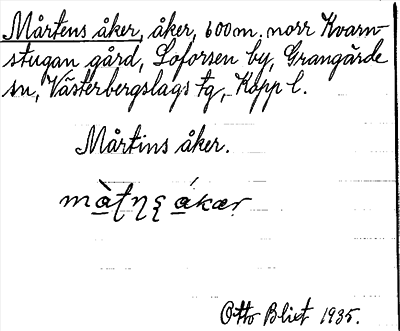 Mårtens åker, åker, 600 m. norr Kvarn-
stugan gård, Loforsen by, Grangärde
sn, Västerbergslags tg, Kopp l.
Mårtins åker.
Otto Blixt 1935.